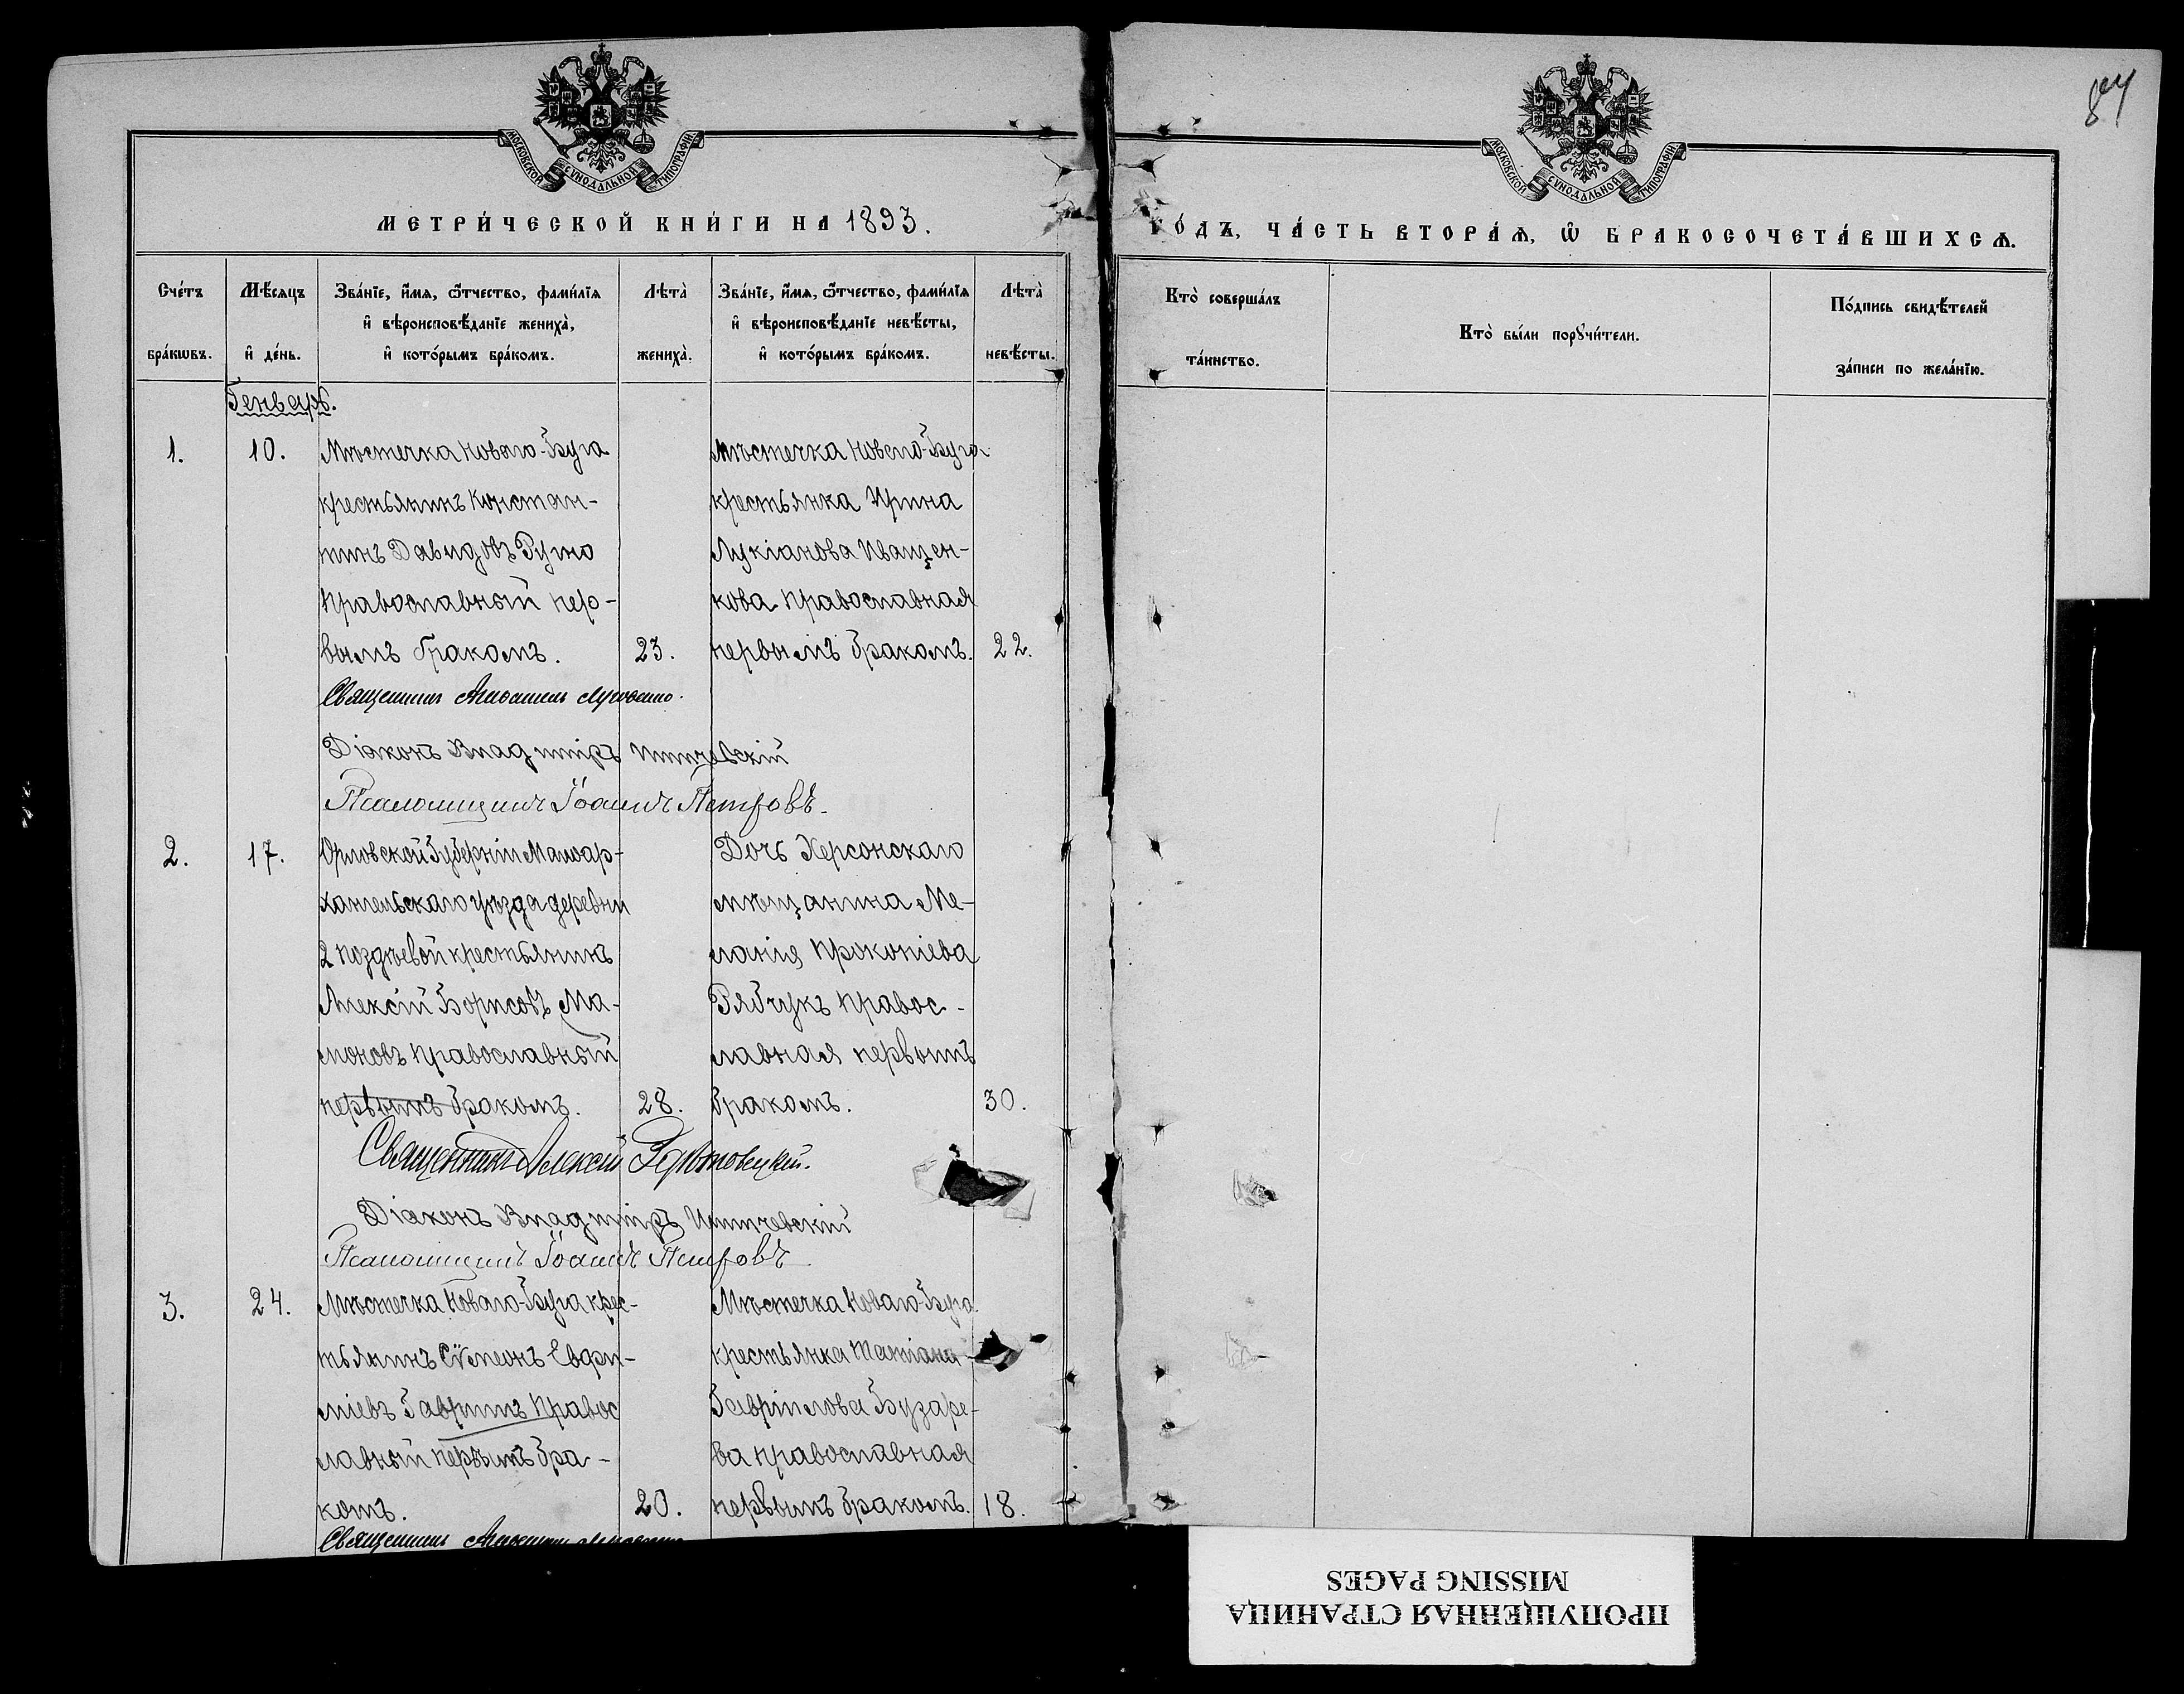 МОСКОВСКОЙ СѴНОДАЛЬНОЙ ТИПОГРАФІИ.
МЕТРИ́ЧЕСКОЙ КНИ́ГИ НА 1893.
Сче́тъ бра́кѡвъ.
Мѣ́сяцъ и҆ де́нь.
Зва́нїе, и҆́мѧ, ѻ҆́тчество, фами́лїѧ
и҆ вѣроисповѣ́данїе жениха̀,
и҆ кото́рымъ бра́комъ.
Лѣта̀ жениха̀.
Зва́нїе, и҆́мѧ, ѻ҆́тчество, фами́лїѧ
и҆ вѣроисповѣ́данїе невѣ́сты,
и҆ кото́рымъ бра́комъ.
Лѣта̀ невѣ́сты.
Генварь.
1.
10.
Мѣстечка Новаго-Буга
крестьянинъ Констан-
тинъ Давидовъ Руно
православный пер-
вымъ бракомъ.
23.
Мѣстечка Новаго-Буга
крестьянка Ирина
Лукіанова Иващен-
кова православная
первымъ бракомъ.
22.
Священникъ
Діаконъ Владиміръ
Псаломщикъ Іоаннъ Петровъ.
2.
17.
Орловской губерніи Малоар-
хангельскаго уѣзда деревни
2 Поздѣевой крестьянинъ
Алексій Борисовъ Ма-
моновъ православный
первымъ бракомъ.
28.
Дочь Херсонскаго
мѣщанина Ме-
ланія Прокопіева
Рябчукъ правос-
лавная первымъ
бракомъ.
30.
Священникъ Алексій
Діаконъ Владиміръ
Псаломщикъ Іоаннъ Петровъ
3.
24.
Мѣстечка Новаго-Буга крес-
тьянинъ Сѵмеонъ Евфи-
міевъ Гавришъ правос
лавный первымъ бра-
комъ.
20.
Мѣстечка Новаго-Буга
крестьянка Татіана
Гавріилова Бузаре-
ва православная
первымъ бракомъ.
18.
Священникъ
МОСКОВСКОЙ СѴНОДАЛЬНОЙ ТИПОГРАФІИ.
ГО́ДЪ, ЧА́СТЬ ВТОРА́Ѧ, Ѽ БРАКОСОЧЕТА́ВШИХСѦ.
Кто̀ соверша́лъ
та́инство.
Кто̀ бы́ли порꙋчи́тели.
По́дпись свидѣ́телей
за́писи по жела́нїю.
ПРОПУЩЕННАЯ СТРАНИЦА
MISSING PAGES